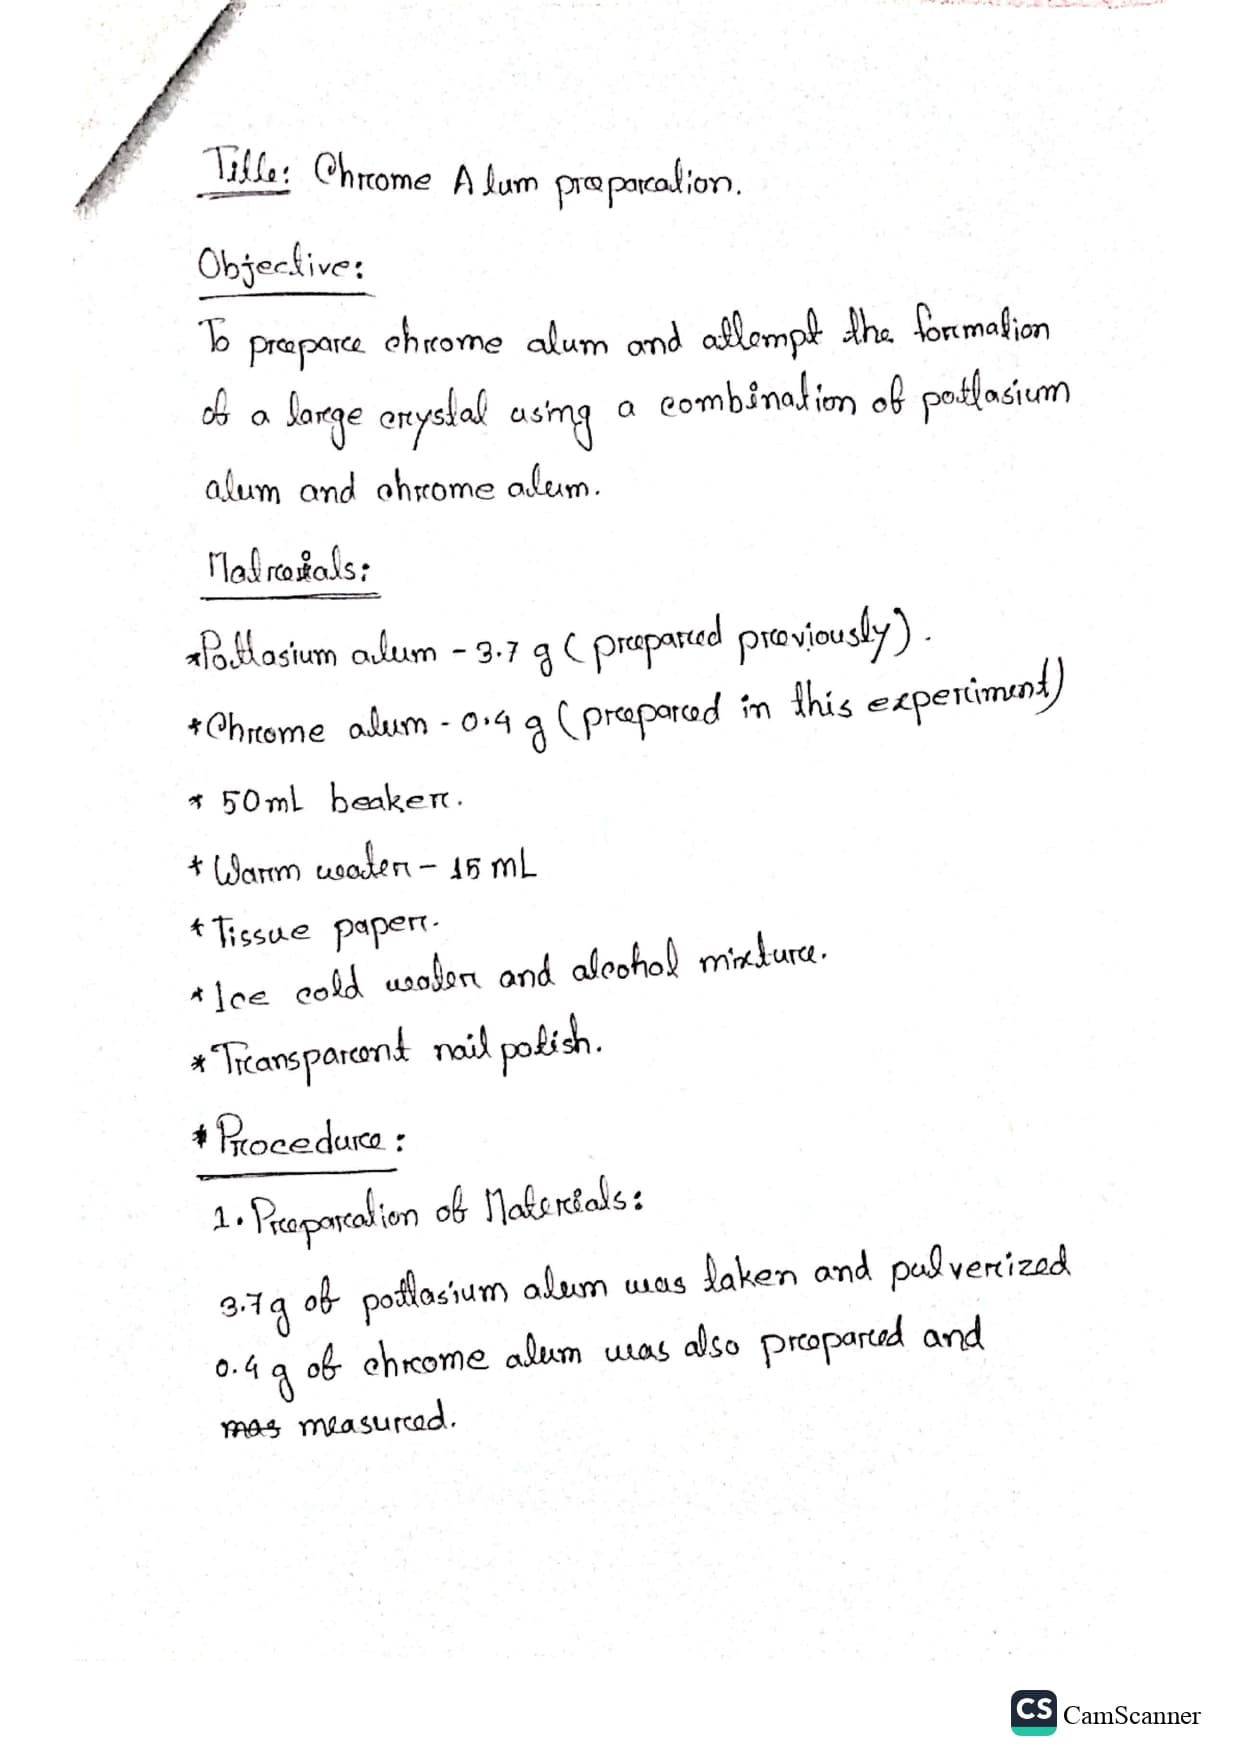 Title: Chrome Alum preparation.
Objective:
To prepare chrome alum and attempt the formation
of a large crystal using a combination of pottasium
alum and chrome alum.
Matreials:
*Pottasium alum - 3.7 g (prepared previously).
*Chrome alum - 0.4 g (prepared in this experiment)
* 50mL beaker.
* Warm water - 15 mL
* Tissue paper.
* Ice cold water and alcohol mixture.
* Transparent nail polish.
* Procedure:
1. Preparation of Materials:
3.7g of pottasium alum was taken and pulverized
0.4 g of chrome alum was also prepared and
mas measured.
CS CamScanner